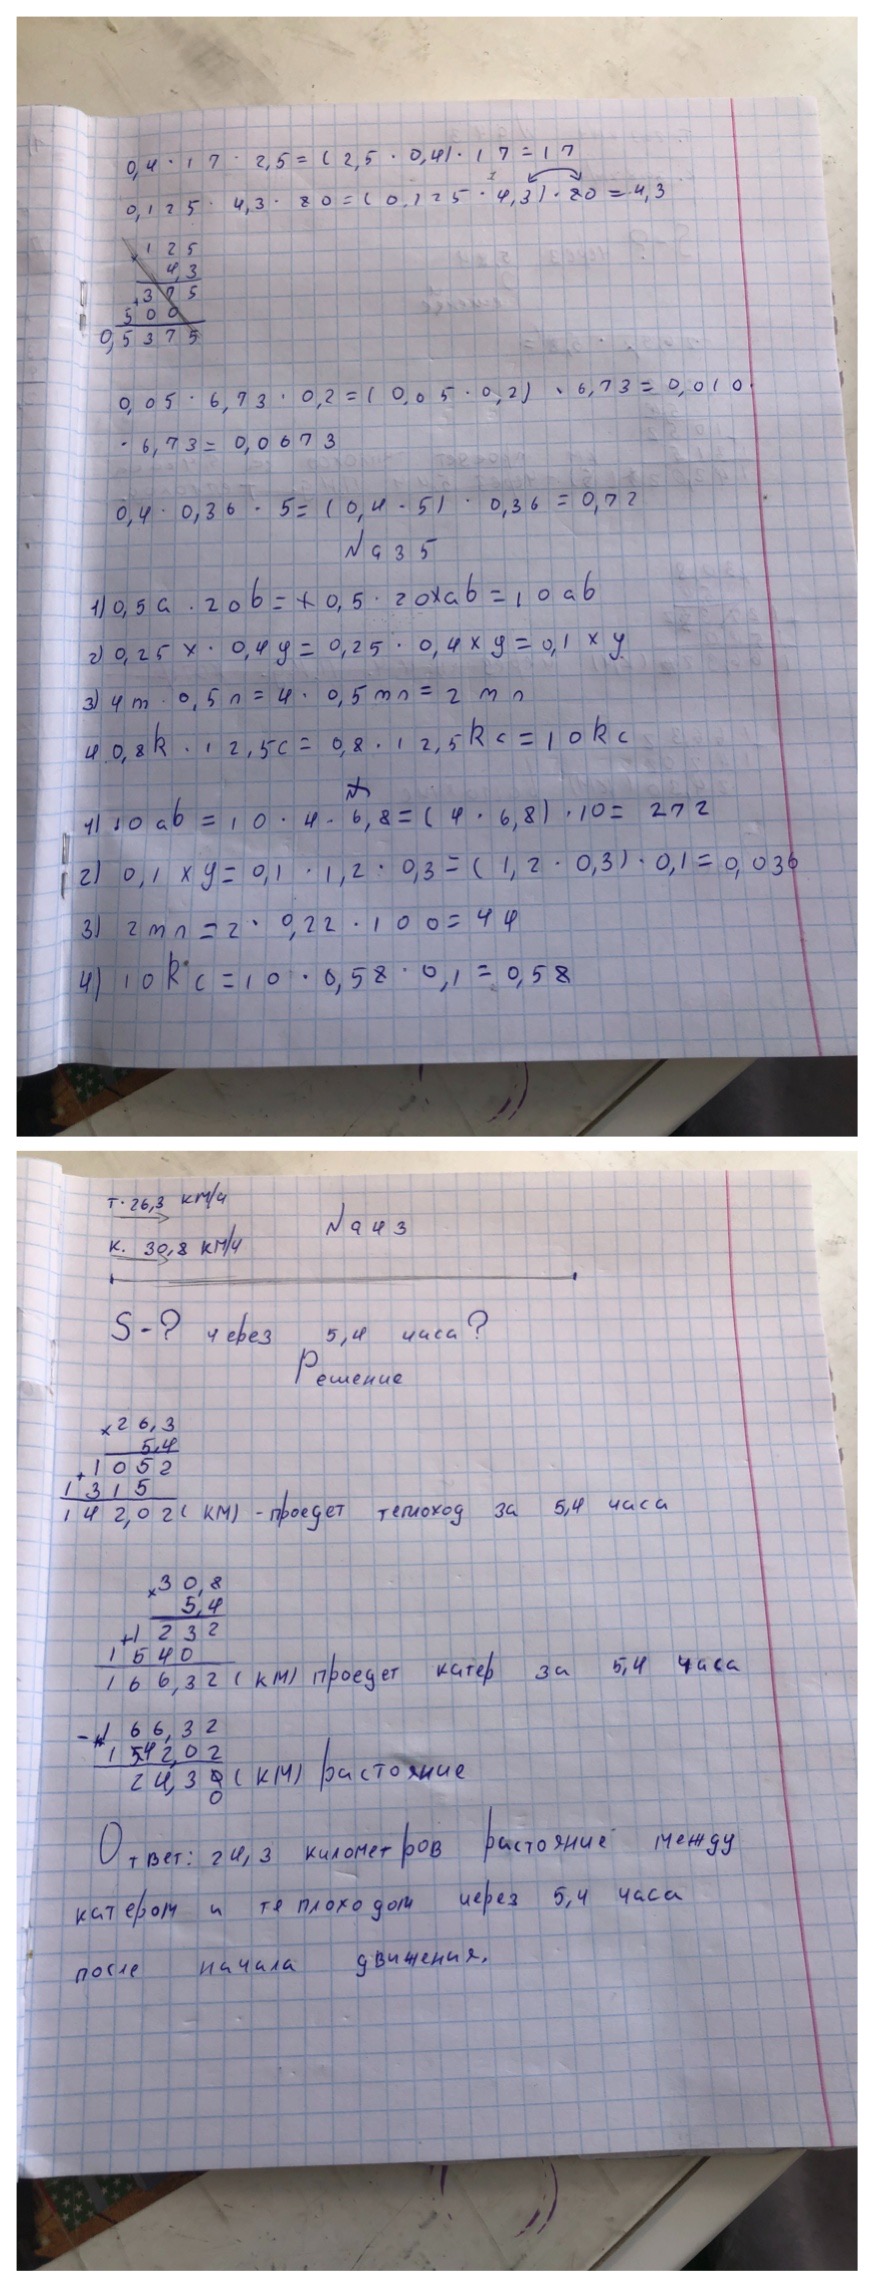 0,4 · 17 · 2,5 = (2,5 · 0,4) · 17 = 17
0,125 · 4,3 · 80 = (0,125 · 4,3) · 80 = 4,3
125
4,3
+375
500
0,5375
0,05 · 6,73 · 0,2 = (0,05 · 0,2) · 6,73 = 0,010 ·
· 6,73 = 0,0673
0,4 · 0,36 · 5 = (0,4 · 5) · 0,36 = 0,72
№935
1) 0,5a · 20b = 0,5 · 20 ab = 10ab
2) 0,25x · 0,4y = 0,25 · 0,4xy = 0,1xy
3) 4m · 0,5n = 4 · 0,5mn = 2mn
4 0,8k · 12,5c = 0,8 · 12,5kc = 10kc
1) 10ab = 10 · 4 · 6,8 = (4 · 6,8) · 10 = 272
2) 0,1xy = 0,1 · 1,2 · 0,3 = (1,2 · 0,3) · 0,1 = 0,036
3) 2mn = 2 · 0,22 · 100 = 44
4) 10kc = 10 · 0,58 · 0,1 = 0,58
т. 26,3 км/ч
№943
к. 30,8 км/ч
S-? через 5,4 часа?
Решение
×26,3
5,4
+1052
1315
142,02 (км) - проедет теплоход за 5,4 часа
×30,8
5,4
+1232
1540
166,32 (км) проедет катер за 5,4 часа
-166,32
142,02
24,30 (км) растояние
Ответ: 24,3 километров растояние между
катером и теплоходом через 5,4 часа
после начала движения.